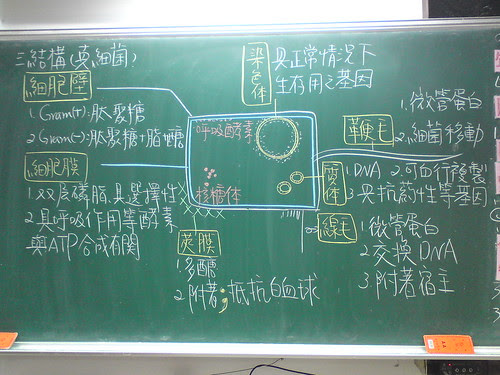 三.結構(真細菌)
細胞壁
1. Gram(+):肽聚糖
2. Gram(-):肽聚糖+脂醣
細胞膜
1.双层磷脂,具選擇性
2.具呼吸作用等酵素
與ATP合成有関
莢膜
1.多醣
2.附著;抵抗白血球
呼吸酵素
核糖体
染色体
具正常情況下
生存用之基因
鞭毛
1.微管蛋白
2.細菌移動
質体
1.DNA 2.可自行複製
3.具抗药性等基因
線毛
1.微管蛋白
2.交換DNA
3.附著宿主